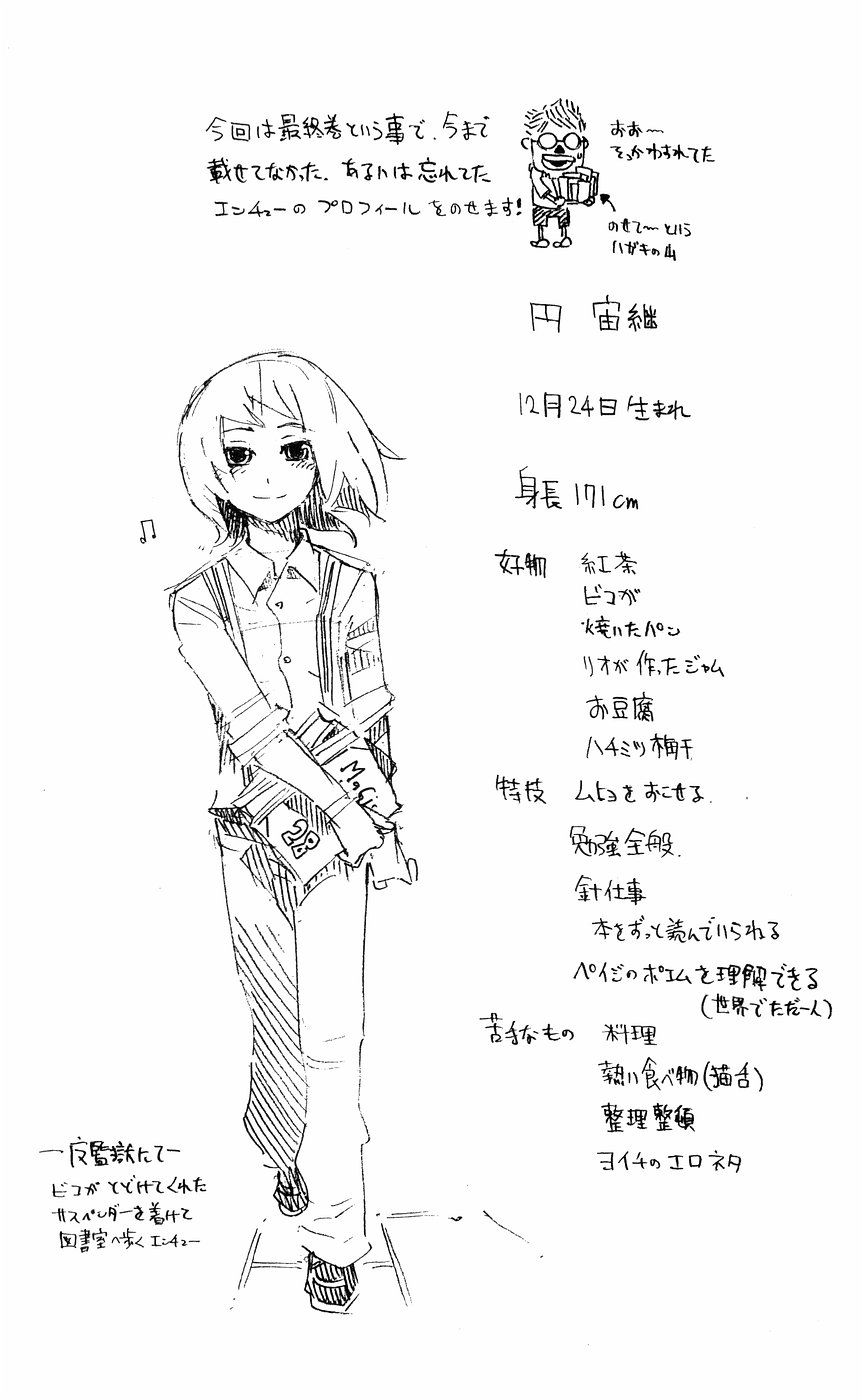 今回は最終巻という事で、今まで
載せてなかった、あるいは忘れてた
エンチューの プロフィール をのせます!
おお〜
そっかわすれてた
のせて〜という
ハガキの山
円 宙継
12月24日 生まれ
身長 171cm
好物 紅茶
ビコが
焼いたパン
リオが 作ったジャム
お豆腐
ハチミツ梅干
特技 ムヒョを おこせる.
勉強全般.
針仕事
本をずっと読んでいられる
ペイジのポエムを理解できる
(世界でただ一人)
苦手なもの 料理
熱い食べ物(猫舌)
整理整頓
ヨイチのエロネタ
♫
MaGic
28
ー反監獄にてー
ビコが とどけてくれた
サスペンダーを着けて
図書室へ歩く エンチュー